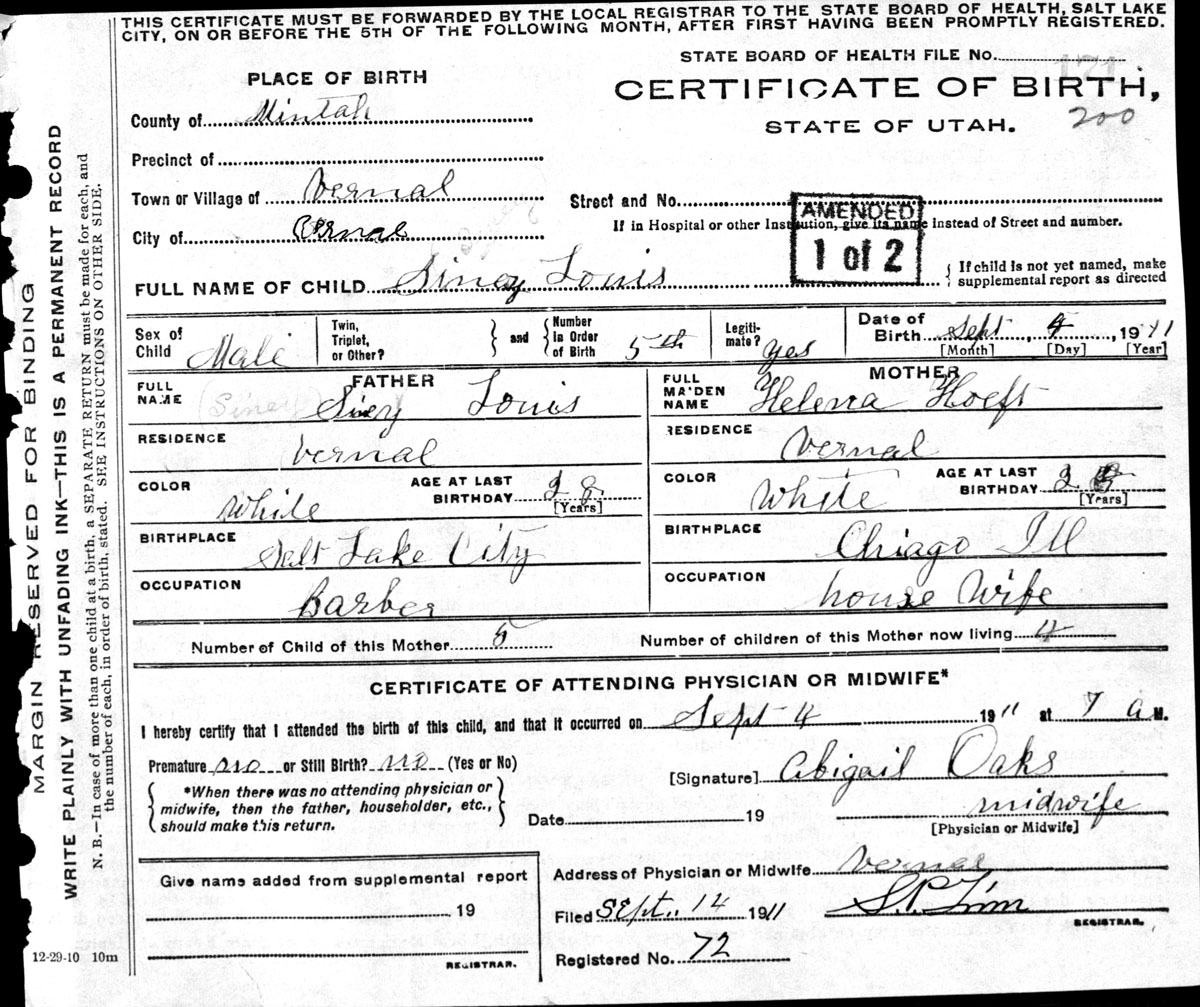 THIS CERTIFICATE MUST BE FORWARDED BY THE LOCAL REGISTRAR TO THE STATE BOARD OF HEALTH, SALT LAKE
CITY, ON OR BEFORE THE 5TH OF THE FOLLOWING MONTH, AFTER FIRST HAVING BEEN PROMPTLY REGISTERED.
MARGIN RESERVED FOR BINDING
WRITE PLAINLY WITH UNFADING INK—THIS IS A PERMANENT RECORD
N. B.—In case of more than one child at a birth, a SEPARATE RETURN must be made for each, and
the number of each, in order of birth, stated. SEE INSTRUCTIONS ON OTHER SIDE.
STATE BOARD OF HEALTH FILE No. 171
PLACE OF BIRTH
CERTIFICATE OF BIRTH,
200
STATE OF UTAH.
County of Mintah
Precinct of
Town or Village of Vernal
Street and No.
AMENDED
1 of 2
If in Hospital or other Institution, give its name instead of Street and number.
City of Vernal
FULL NAME OF CHILD Siney Louis
{ If child is not yet named, make
supplemental report as directed
Sex of Child Male
Twin, Triplet, or Other?
and
Number in Order of Birth 5th
Legitimate? yes
Date of Birth Sept, 4, 1911
[Month] [Day] [Year]
FATHER
MOTHER
FULL NAME (Siney) Siney Louis
FULL MAIDEN NAME Helena Hoeft
RESIDENCE Vernal
RESIDENCE Vernal
COLOR White AGE AT LAST BIRTHDAY 28 [Years]
COLOR White AGE AT LAST BIRTHDAY 28 [Years]
BIRTHPLACE Salt Lake City
BIRTHPLACE Chiago Ill
OCCUPATION Barber
OCCUPATION house Wife
Number of Child of this Mother 5 Number of children of this Mother now living 4
CERTIFICATE OF ATTENDING PHYSICIAN OR MIDWIFE*
I hereby certify that I attended the birth of this child, and that it occurred on Sept 4 1911 at 7 a M.
Premature no or Still Birth? no (Yes or No)
[Signature] Abigail Oaks
*When there was no attending physician or
midwife, then the father, householder, etc.,
should make this return.
Date 19
midwife
[Physician or Midwife]
Give name added from supplemental report
19
REGISTRAR.
Address of Physician or Midwife Vernal
Filed Sept. 14 1911
REGISTRAR.
Registered No. 72
12-29-10 10m